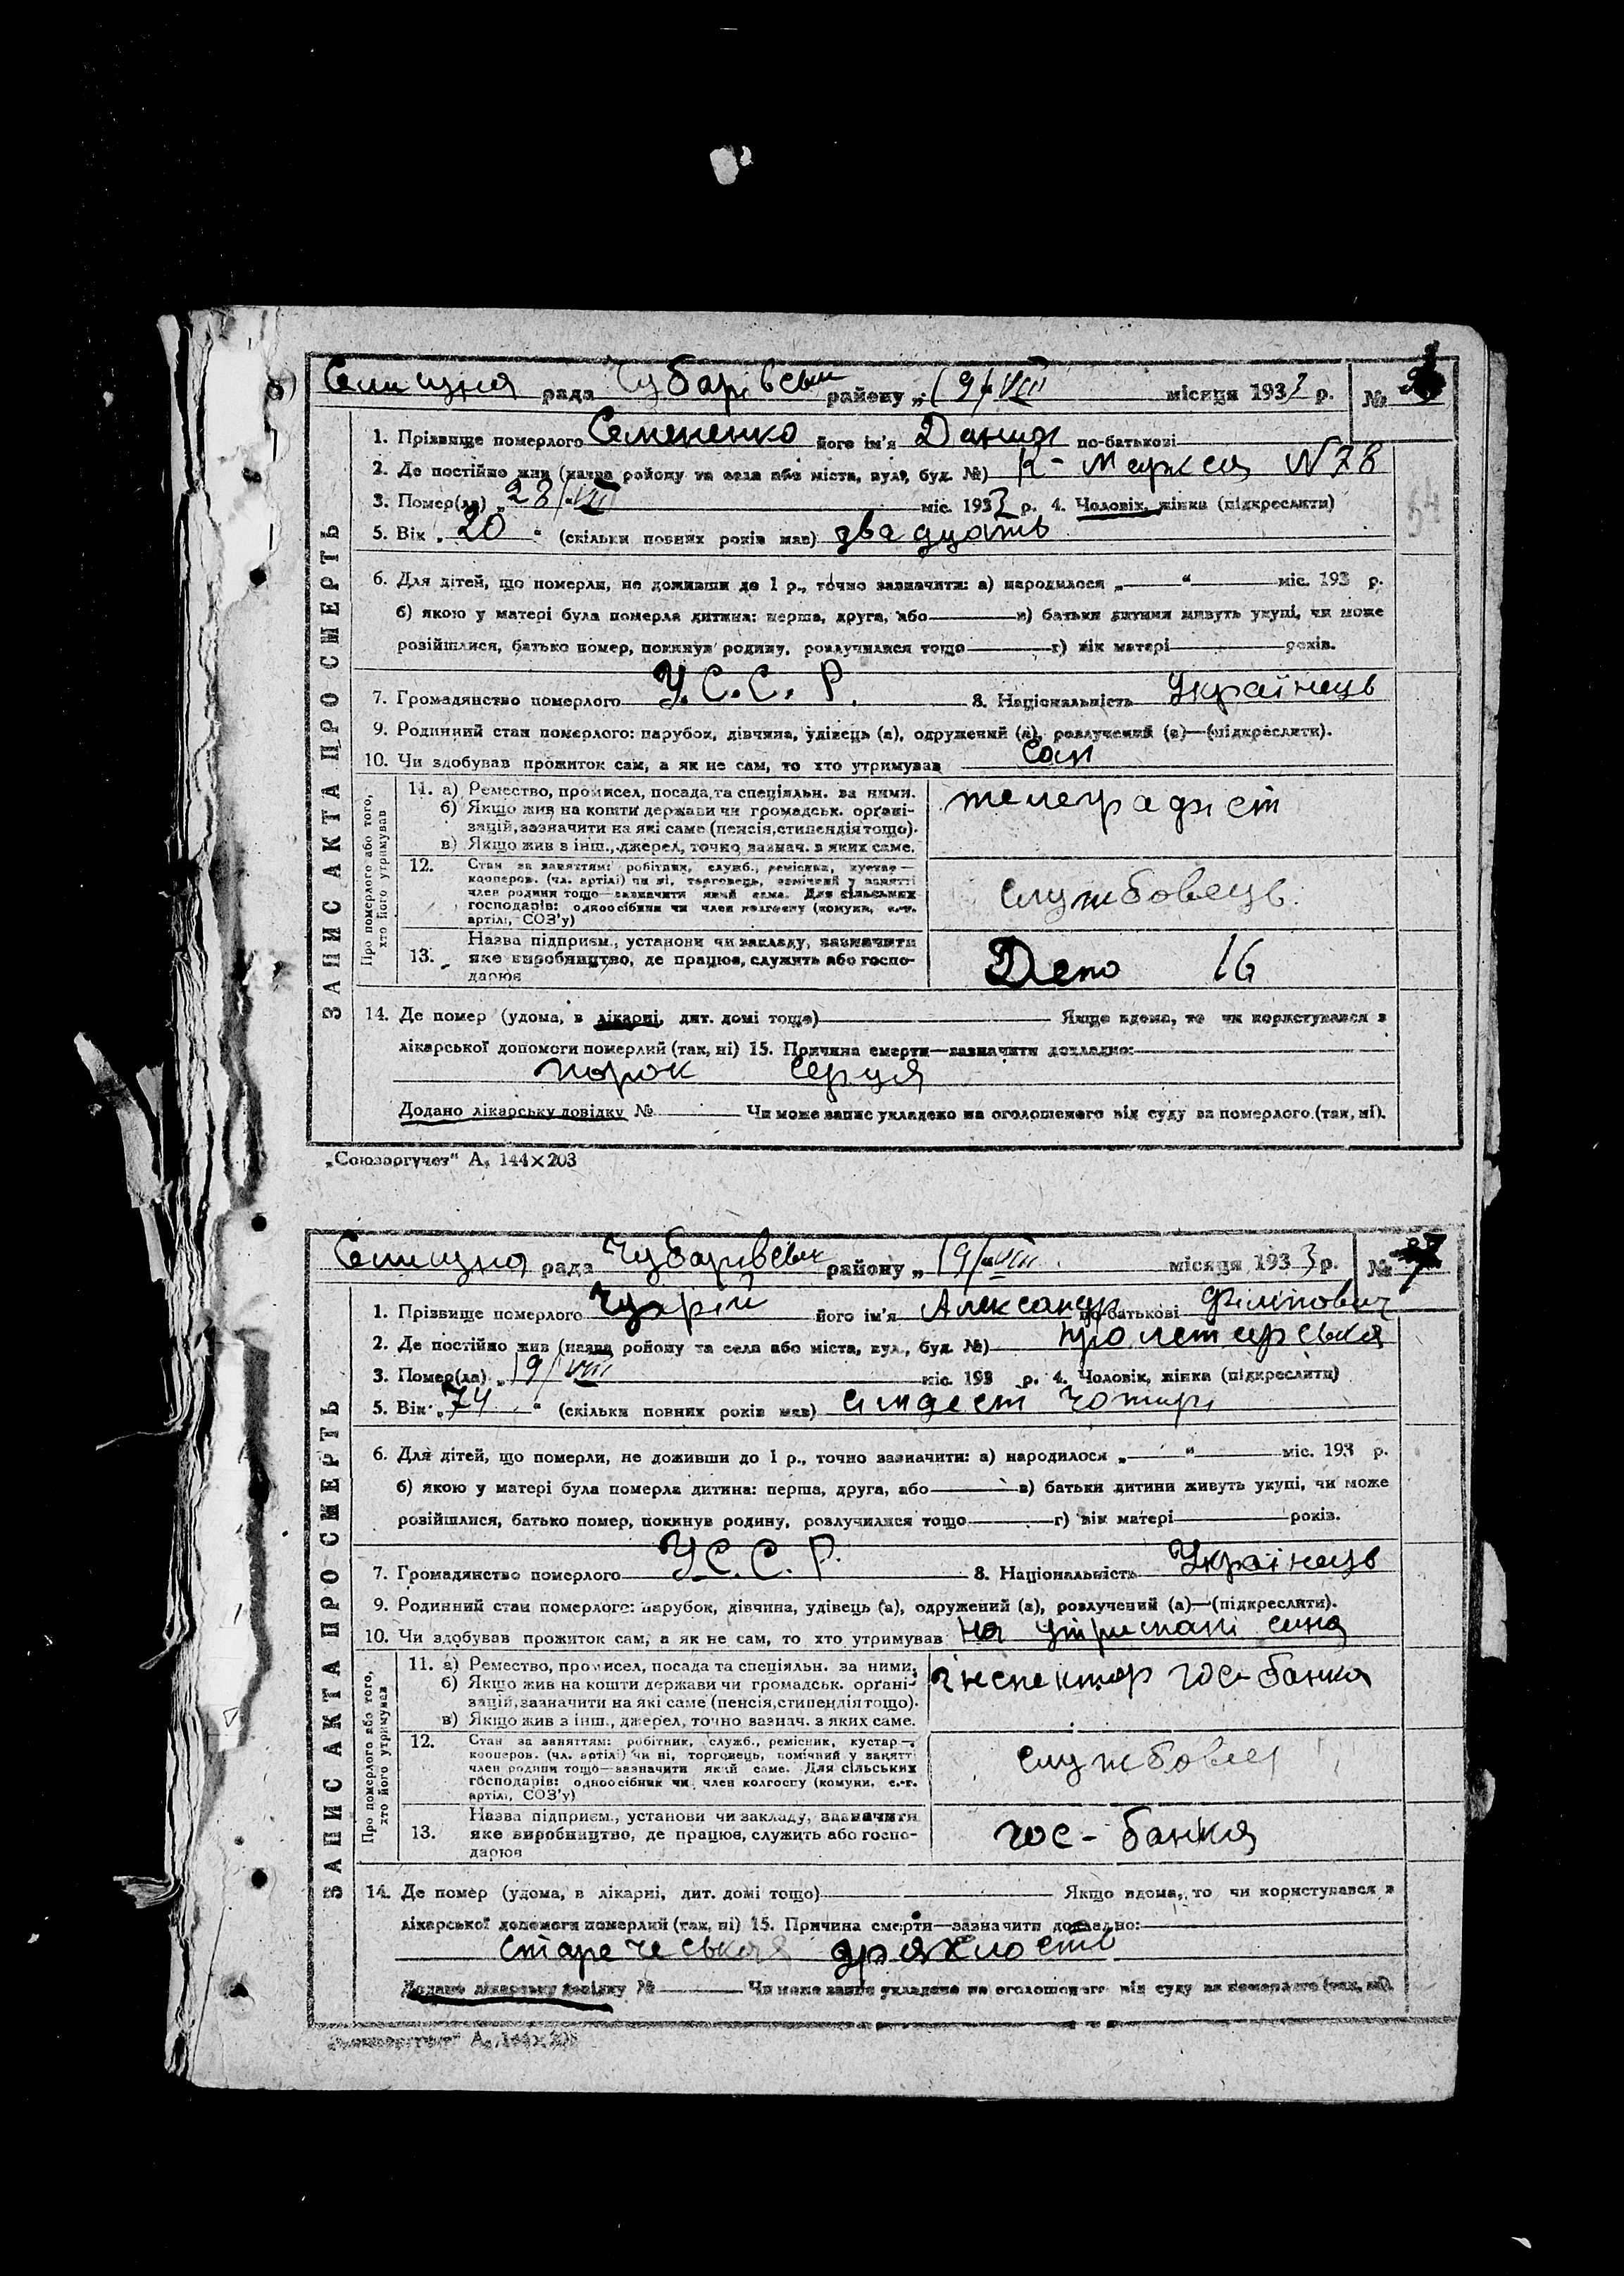 ЗАПИС АКТА ПРО СМЕРТЬ
Селищна рада Чубарівськ району „19/VIII місяця 1933 р. №
1. Прізвище померлого Семененко його ім'я Данил по-батькові
2. Де постійно жив (назва району та села або міста, вул., буд. №) К-Маркса N 78
3. Помер(ла) „28/VII міс. 1933 р. 4. Чоловік, жінка (підкреслити)
5. Вік „20“ (скільки повних років мав) двадцать
54
6. Для дітей, що померли, не доживши до 1 р., точно зазначити: а) народилося „ “ міс. 193 р.
б) якою у матері була померла дитина: перша, друга, або в) батьки дитини живуть укупі, чи може
розійшлися, батько помер, покинув родину, розлучилися тощо г) вік матері років.
7. Громадянство померлого У.С.С.Р. 8. Національність Українець
9. Родинний стан померлого: парубок, дівчина, удівець (а), одружений (а), розлучений (а)—(підкреслити).
10. Чи здобував прожиток сам, а як не сам, то хто утримував сам
Про померлого або того, хто його утримував
11. а) Ремество, промисел, посада та спеціяльн. за ними. телеграфіст
б) Якщо жив на кошти держави чи громадськ. органі-
зацій, зазначити на які саме (пенсія, стипендія тощо).
в) Якщо жив з інш., джерел, точно зазнач. з яких саме.
12. Стан за заняттям: робітник, служб., ремісник, кустар—
кооперов. (чл. артілі) чи ні, торговець, помічний у занятті
член родини тощо—зазначити який саме. Для сільських службовець
господарів: одноосібник чи член колгоспу (комуни, с.-г.
артілі, СОЗ'у)
Назва підприєм., установи чи закладу, зазначити
13. яке виробництво, де працює, служить або госпо- Депо 16
дарює
14. Де помер (удома, в лікарні, дит. домі тощо) Якщо вдома, то чи користувався з
лікарської допомоги померлий (так, ні) 15. Причина смерти—зазначити докладно:
порок серця
Додано лікарську довідку № Чи може запис укладено на оголошеного від суду за померлого (так, ні).
„Союзоргучет“ А, 144×203
ЗАПИС АКТА ПРО СМЕРТЬ
Селищна рада Чубарівськ району „19/VIII місяця 1933 р. № 7
1. Прізвище померлого його ім'я Александр по-батькові Філіпович
2. Де постійно жив (назва району та села або міста, вул., буд. №) Пролетарська
3. Помер(ла) „19/VIII міс. 193 р. 4. Чоловік, жінка (підкреслити)
5. Вік „74“ (скільки повних років мав) сімдесят чотирі
6. Для дітей, що померли, не доживши до 1 р., точно зазначити: а) народилося „ “ міс. 193 р.
б) якою у матері була померла дитина: перша, друга, або в) батьки дитини живуть укупі, чи може
розійшлися, батько помер, покинув родину, розлучилися тощо г) вік матері років.
7. Громадянство померлого У.С.С.Р. 8. Національність Українець
9. Родинний стан померлого: парубок, дівчина, удівець (а), одружений (а), розлучений (а)—(підкреслити).
10. Чи здобував прожиток сам, а як не сам, то хто утримував на утримані сина
Про померлого або того, хто його утримував
11. а) Ремество, промисел, посада та спеціяльн. за ними. інспектор гос-банка
б) Якщо жив на кошти держави чи громадськ. органі-
зацій, зазначити на які саме (пенсія, стипендія тощо).
в) Якщо жив з інш., джерел, точно зазнач. з яких саме.
12. Стан за заняттям: робітник, служб., ремісник, кустар—
кооперов. (чл. артілі) чи ні, торговець, помічний у занятті
член родини тощо—зазначити який саме. Для сільських
господарів: одноосібник чи член колгоспу (комуни, с.-г.
артілі, СОЗ'у)
Назва підприєм., установи чи закладу, зазначити
13. яке виробництво, де працює, служить або госпо- гос-банка
дарює
14. Де помер (удома, в лікарні, дит. домі тощо) Якщо вдома, то чи користувався з
лікарської допомоги померлий (так, ні) 15. Причина смерти—зазначити докладно:
старческая дряхлость
Додано лікарську довідку № Чи може запис укладено на оголошеного від суду за померлого (так, ні).
„Союзоргучет“ А, 144×203